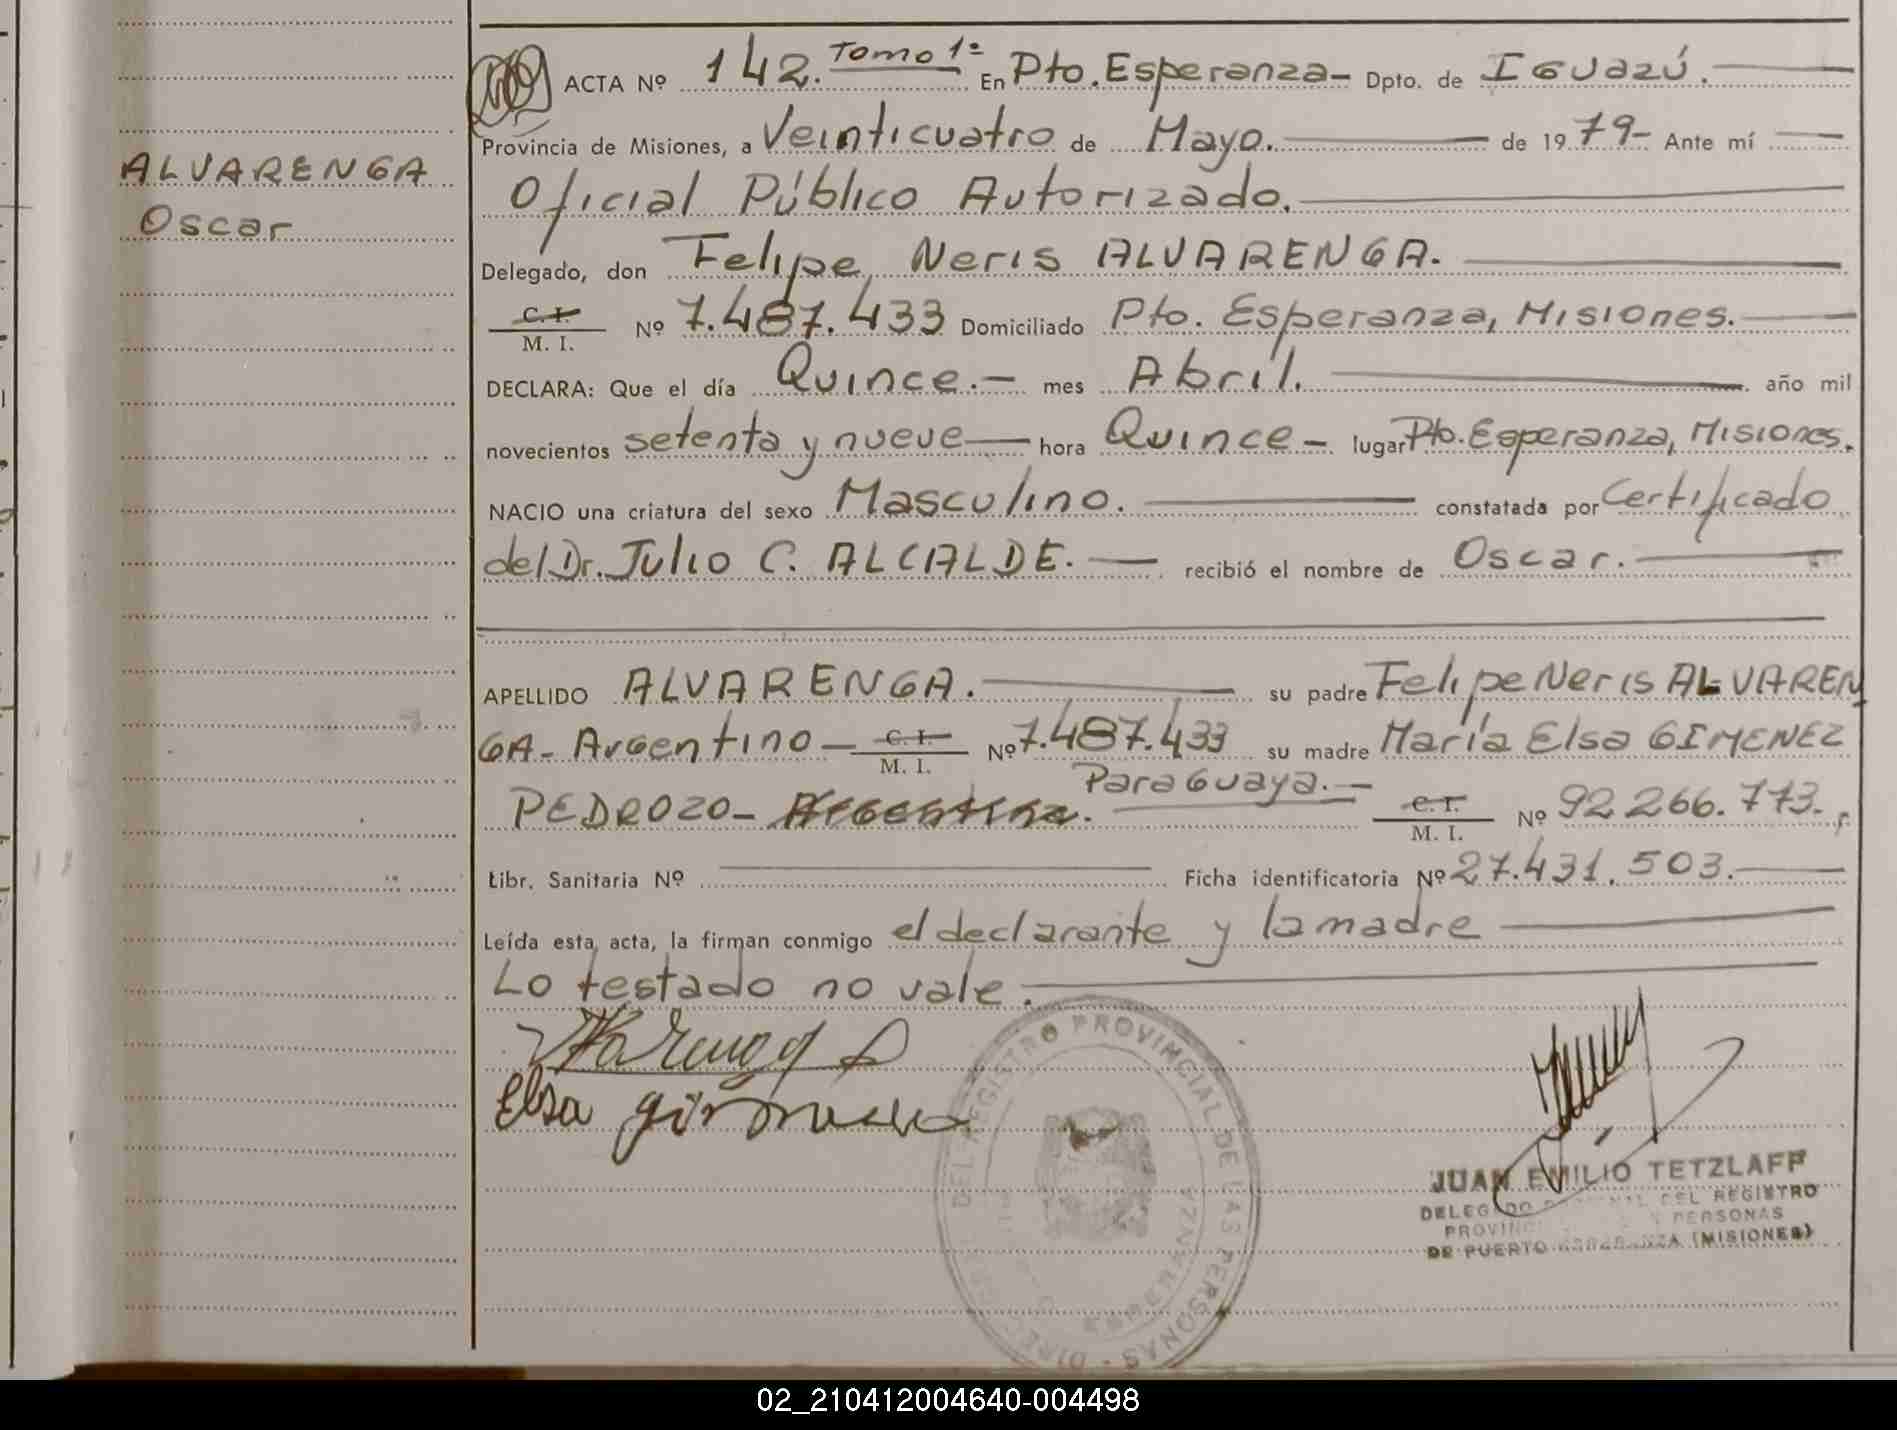 ALVARENGA
Oscar
ACTA Nº 142. Tomo 1º En Pto. Esperanza- Dpto. de Iguazú.
Provincia de Misiones, a Veinticuatro de Mayo. de 1979- Ante mí
Oficial Público Autorizado.
Delegado, don Felipe Neris ALVARENGA.
C. I.
M. I. Nº 7.487.433 Domiciliado Pto. Esperanza, Misiones.
DECLARA: Que el día Quince.- mes Abril. año mil
novecientos setenta y nueve hora Quince- lugar Pto. Esperanza, Misiones.
NACIO una criatura del sexo Masculino. constatada por Certificado
del Dr. Julio C. ALCALDE. recibió el nombre de Oscar.
APELLIDO ALVARENGA. su padre Felipe Neris ALVAREN
GA- Argentino- C. I. M. I. Nº 7.487.433 su madre María Elsa GIMENEZ
Paraguaya.-
PEDROZO- Argentina. C. I. M. I. Nº 92.266.773.
Libr. Sanitaria Nº Ficha identificatoria Nº 27.431.503.
Leída esta acta, la firman conmigo el declarante y la madre
Lo testado no vale.
Elsa
DEL REGISTRO PROVINCIAL DE LAS PERSONAS
JUAN EMILIO TETZLAFF
DELEGADO DEL REGISTRO
PERSONAS
DE PUERTO ESPERANZA (MISIONES)
02_210412004640-004498